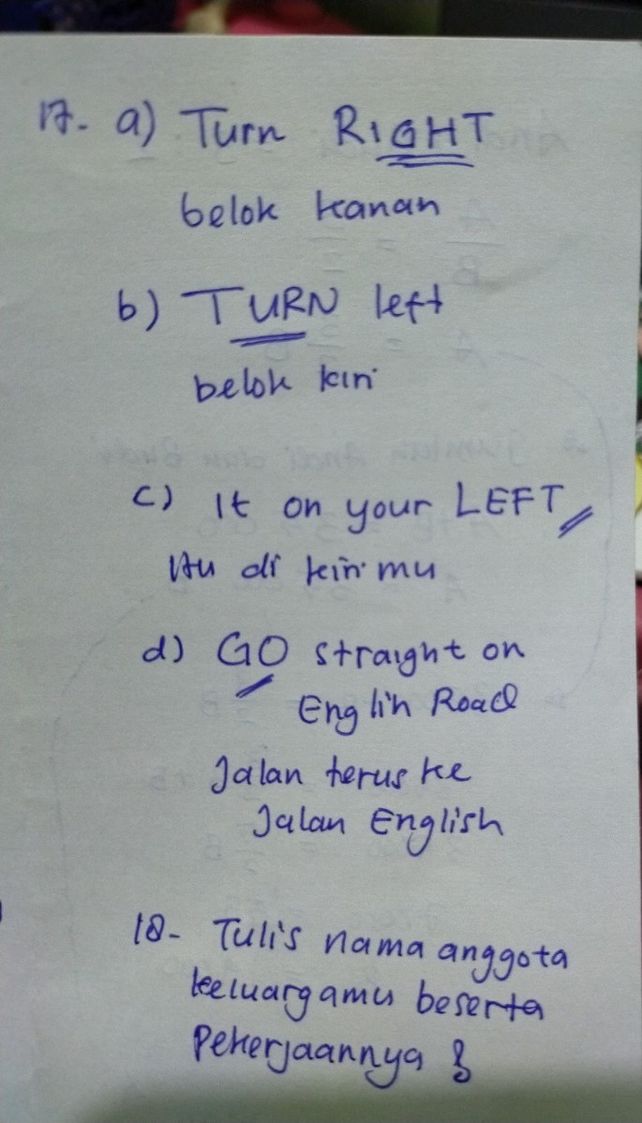 17. a) Turn RIGHT
belok kanan
b) TURN left
belok kiri
c) It on your LEFT
Itu di kirimu
d) GO straight on
Englih Road
Jalan terus ke
Jalan English
18- Tulis nama anggota
keluargamu beserta
Pekerjaannya